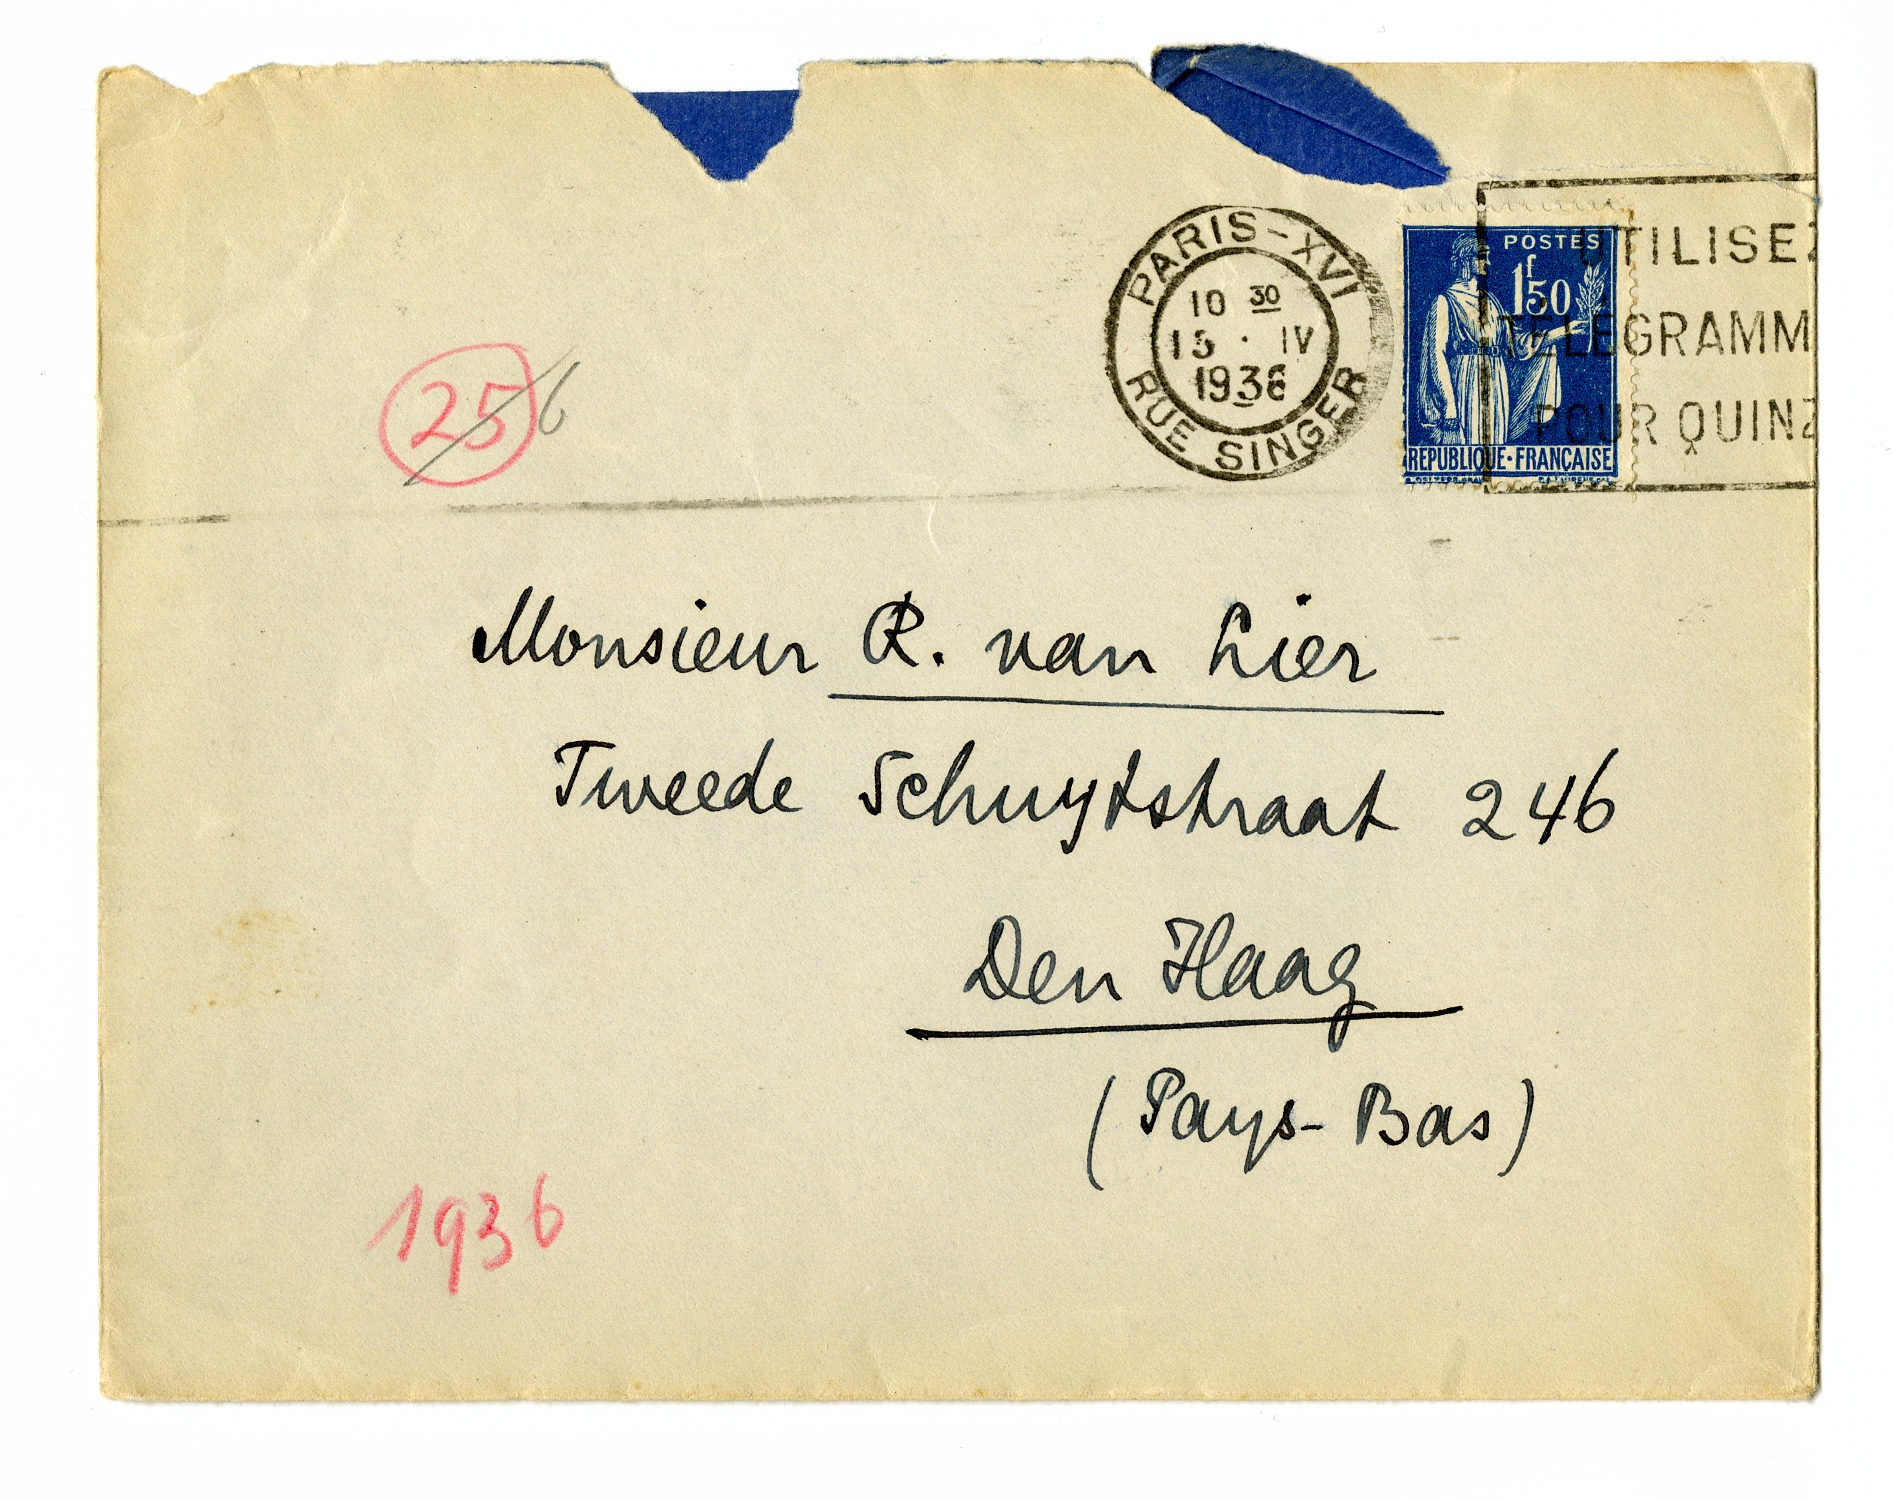 PARIS-XVI
10 30
15 · IV
1936
RUE SINGER
POSTES
1f50
REPUBLIQUE·FRANÇAISE
UTILISEZ
TÉLÉGRAMM
POUR QUINZ
25 6
Monsieur R. van Lier
Tweede Schuytstraat 246
Den Haag
(Pays-Bas)
1936